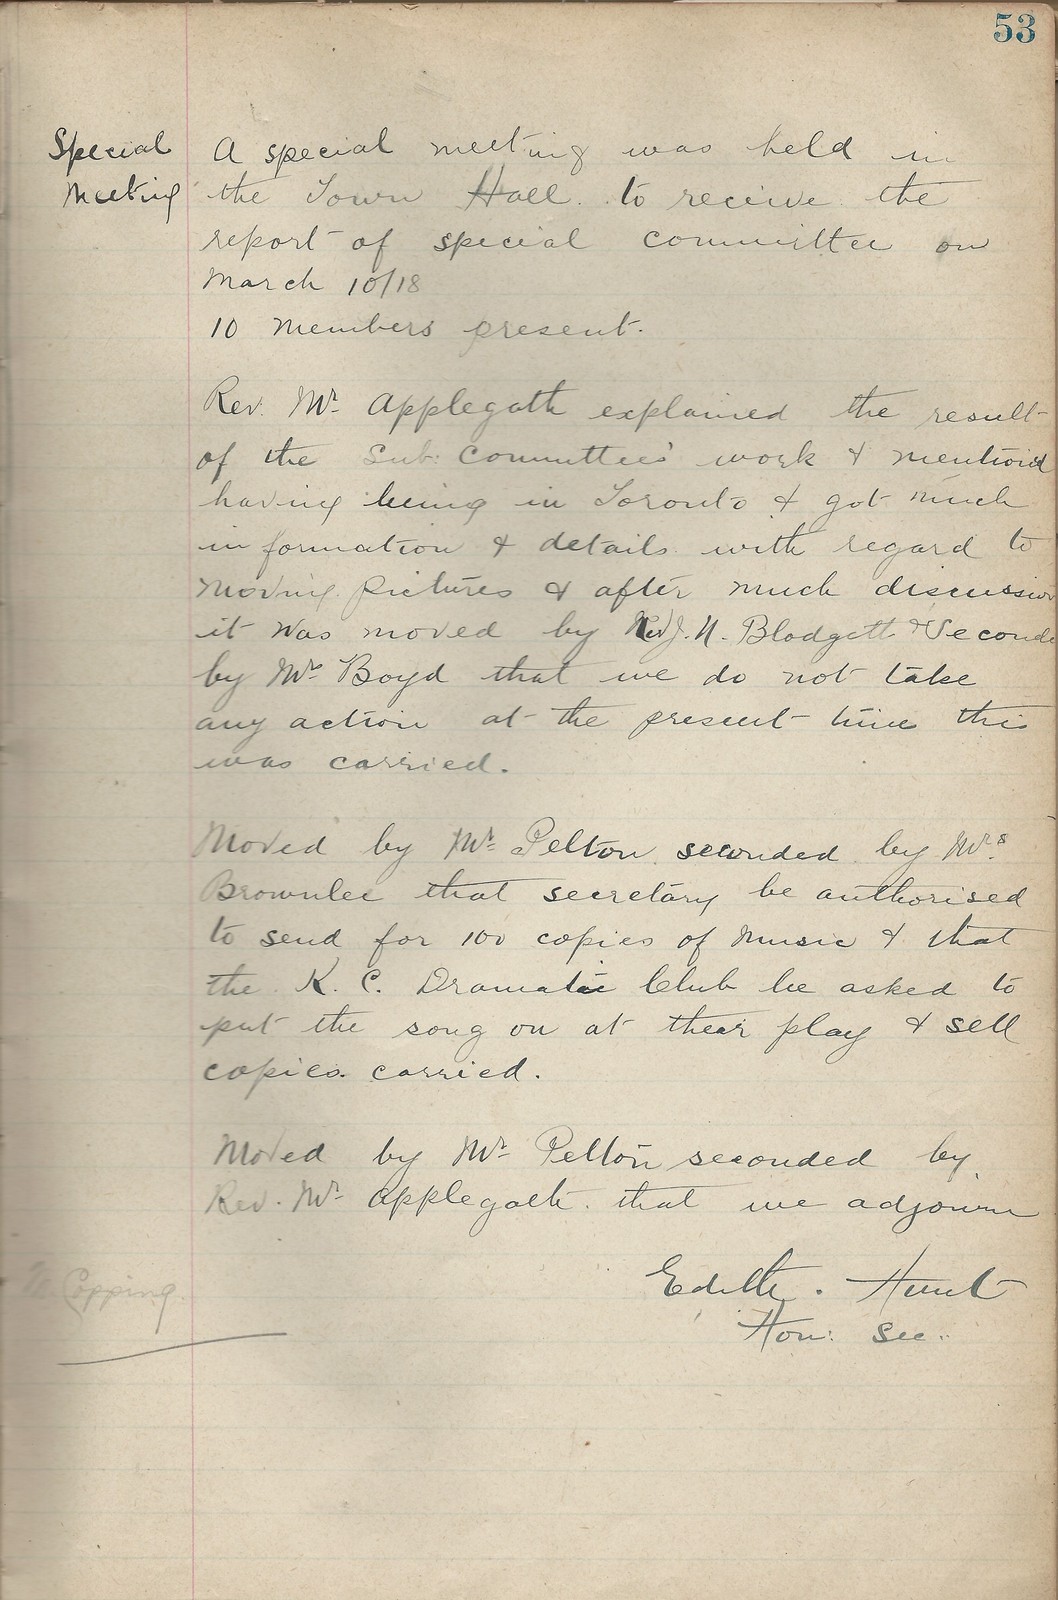 53
Special
Meeting
A special meeting was held in
the Town Hall. to receive the
report of special committee on
March 10/18
10 members present.
Rev. Mr. Applegath explained the result
of the Sub. Committees' work & mentioid
having being in Toronto & got much
information & details with regard to
moving pictures & after much discussion
it was moved by Rev J. N. Blodgett & Seconde
by Mr Boyd that we do not take
any action at the present time this
was carried.
Moved by Mr. Pelton seconded by Mrs.
Brownlee that secretary be authorised
to send for 100 copies of Music & that
the K. C. Dramatic Club be asked to
put the song on at their play & sell
copies. carried.
Moved by Mr. Pelton seconded by
Rev. Mr. Applegath. that we adjourn
Edith. Hunt
Hon: Sec.
Copping